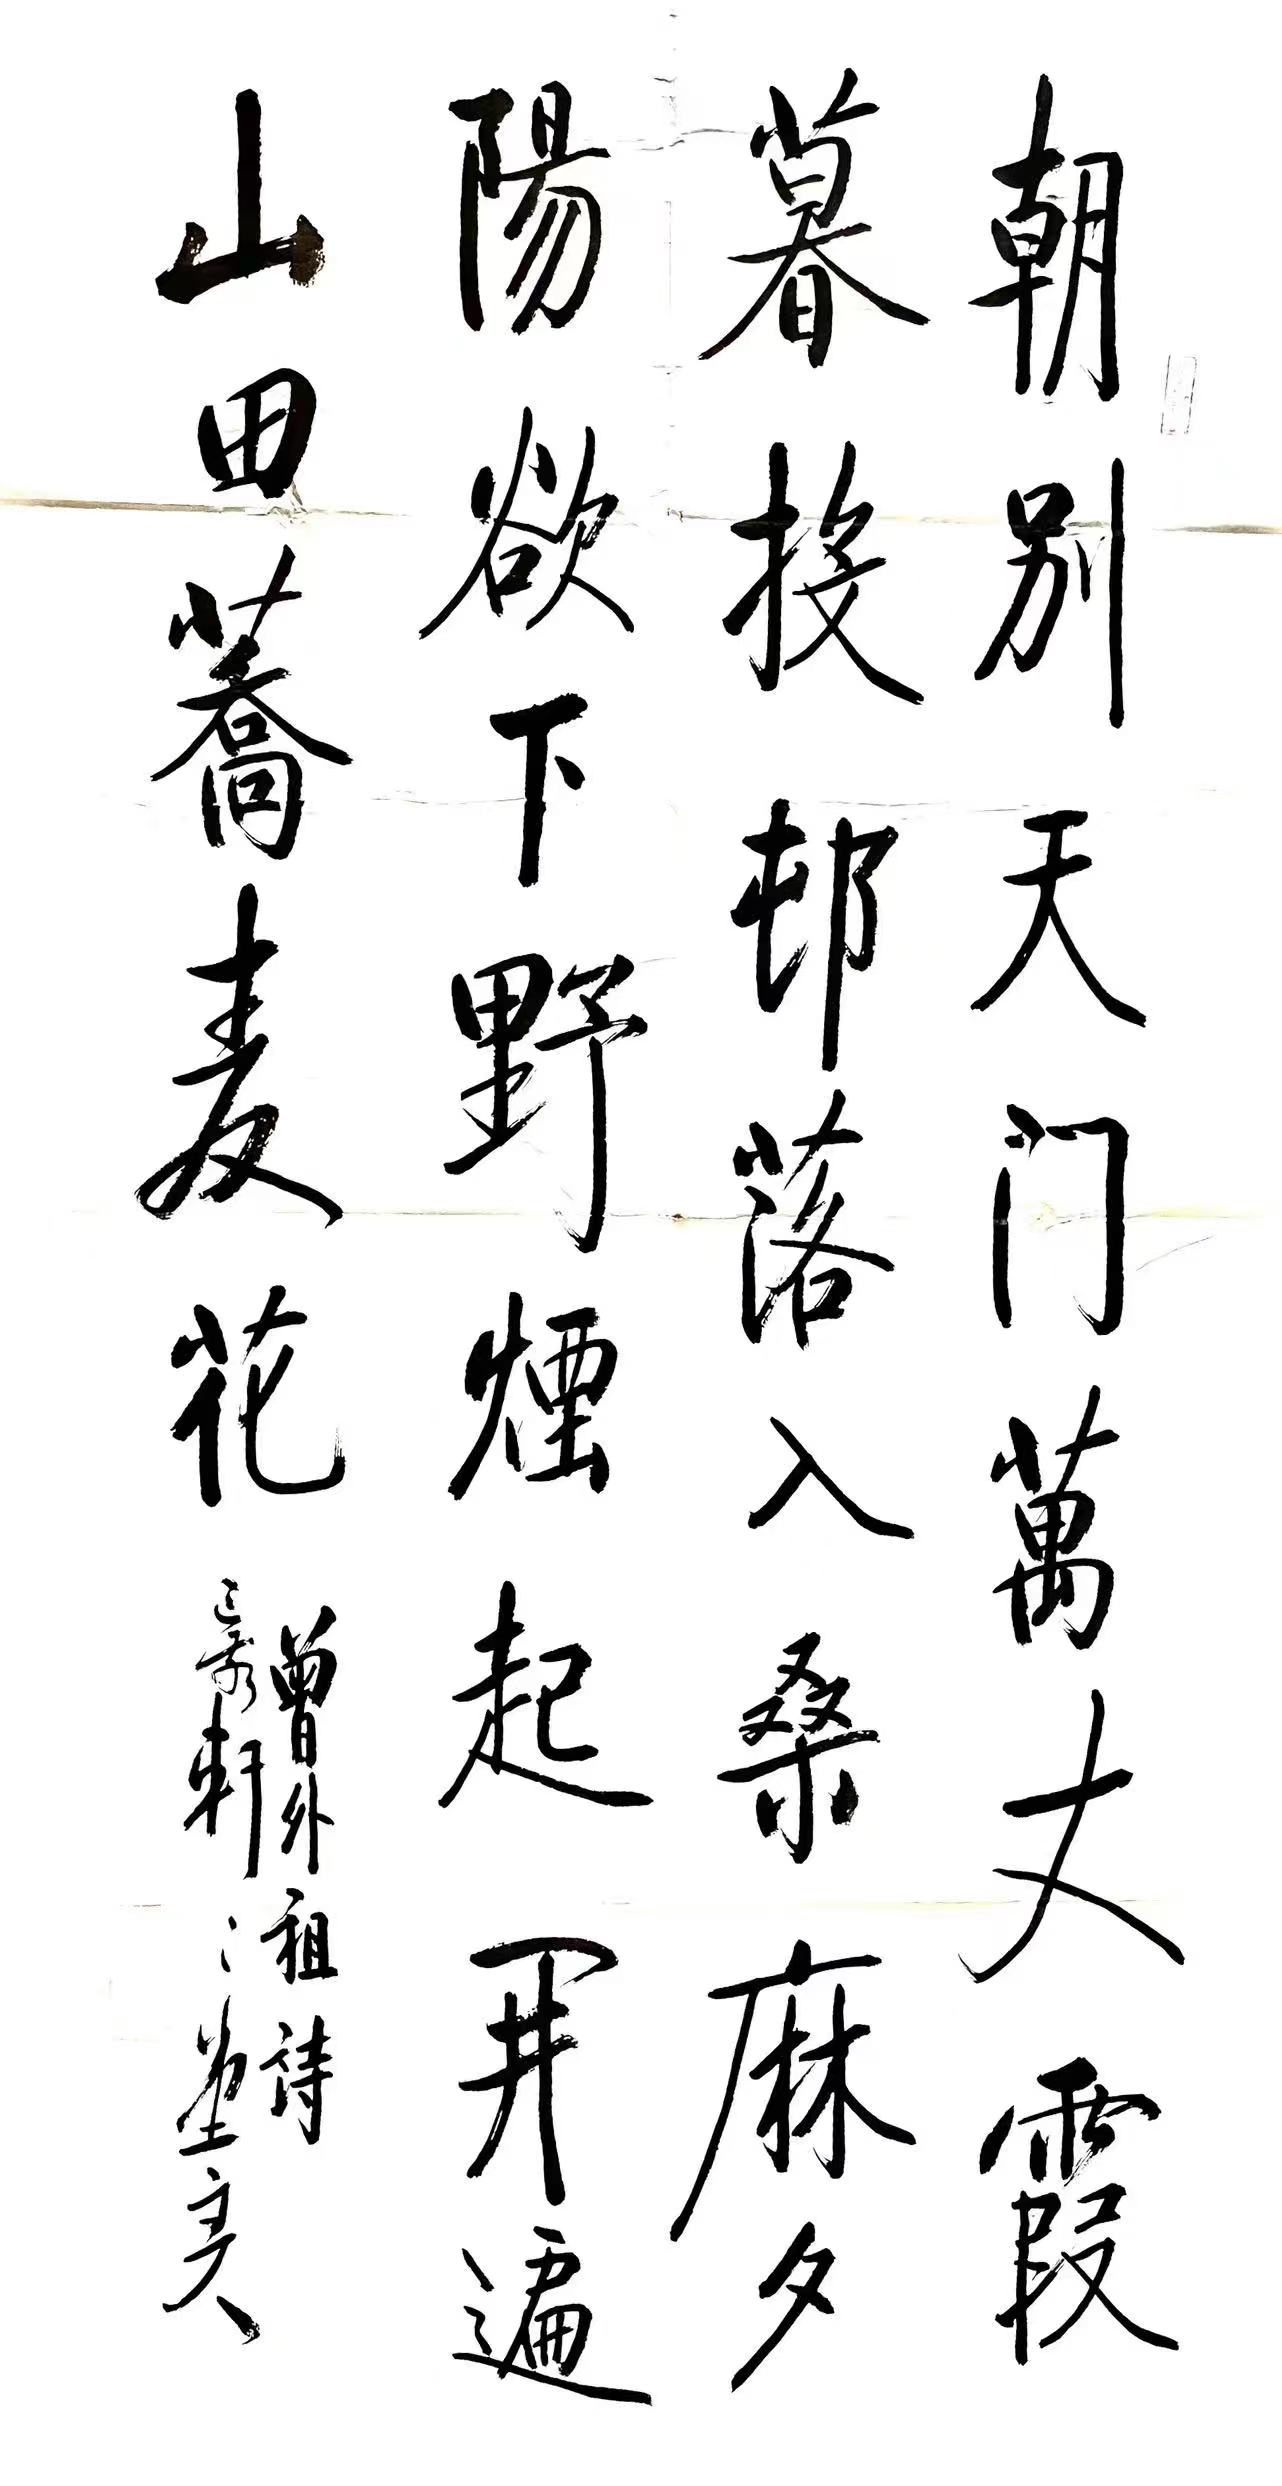 朝别天门萬丈霞
暮投邨落入桑麻夕
陽欲下野煙起開遍
山田蕎麦花
曾外祖詩
軒